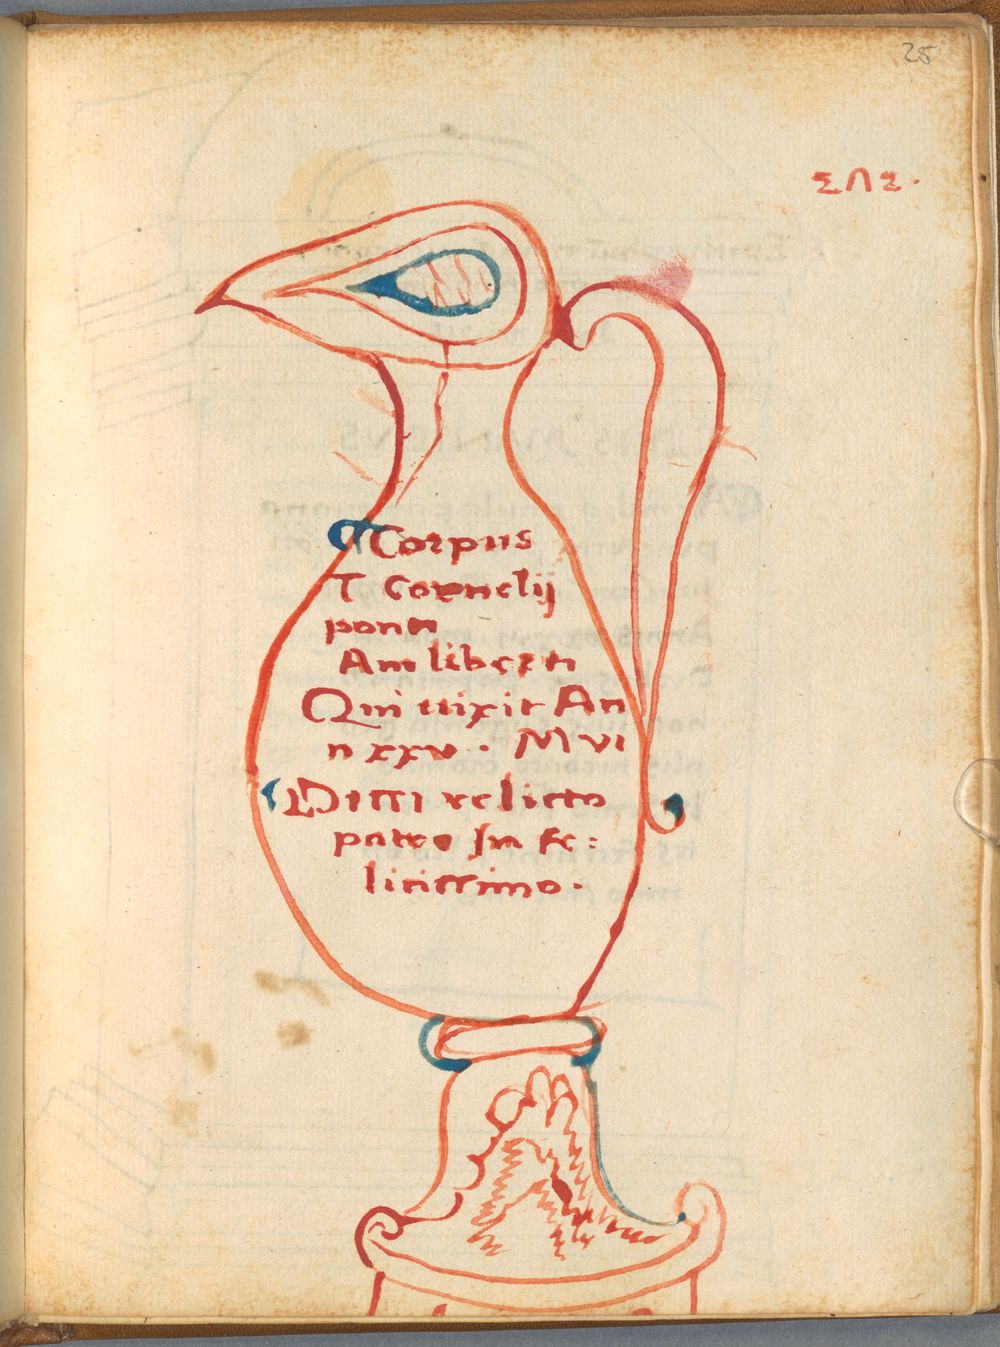 25
ΣΠΣ.
Corpus
T Cornelij
pont
Am liberti
Qui uixit An
n xxv . M vi
Ditti relicto
patre In fe:
licissimo.